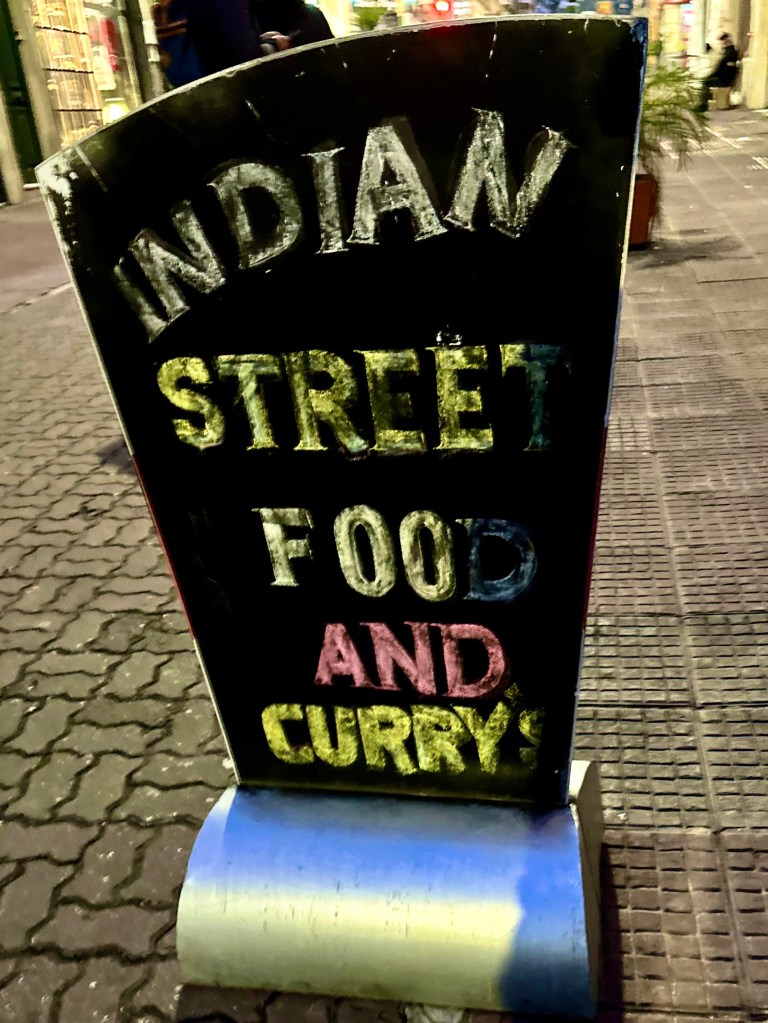 INDIAN
STREET
FOOD
AND
CURRY'S